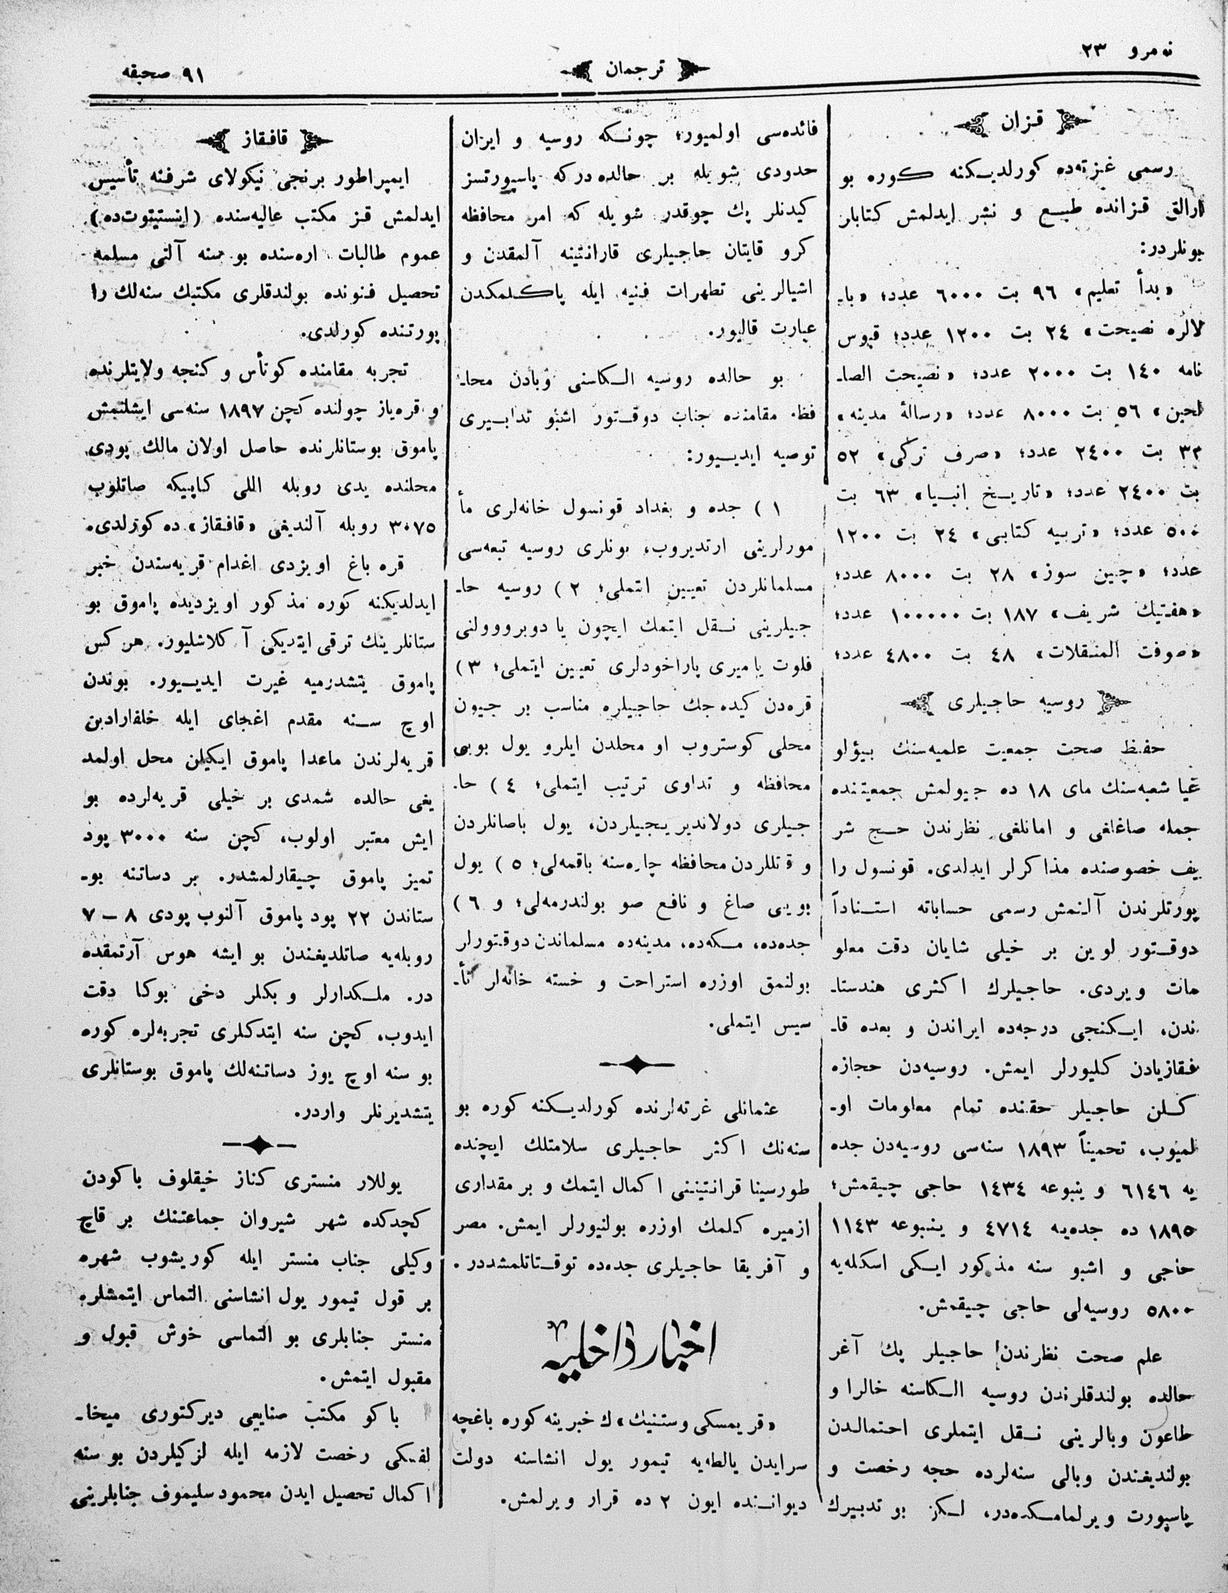 نه‌مرو ٢٣
ترجمان
٩١ صحیفه
قزان
رسمی غزته‌ده کورلدیکنه کوره بو
ارالق قزانده طبع و نشر ایدلمش کتابلر
بونلردر:
«بدأ تعلیم» ٩٦ بت ٦٠٠٠ عدد؛ «با۔
لالره نصیحت» ٢٤ بت ١٢٠٠ عدد؛ قپوس
نامه ١٤٠ بت ٢٠٠٠ عدد؛ «نصیحت الصا۔
لحین» ٥٦ بت ٨٠٠٠ عدد؛ «رسالۀ مدینه»
٣٢ بت ٢٤٠٠ عدد؛ «صرف ترکی» ٥٢
بت ٢٤٠٠ عدد؛ «تاریخ انبیا» ٦٣ بت
٥٠٠ عدد؛ «تربیه کتابی» ٢٤ بت ١٢٠٠
عدد؛ «چین سوز» ٢٨ بت ٨٠٠٠ عدد؛
«هفتیك شریف» ١٨٧ بت ١٠٠٠٠٠ عدد؛
«صوفت المنقلات» ٤٨ بت ٤٨٠٠ عدد؛
روسیه حاجیلری
حفظ صحت جمعیت علمیه‌سنك بیؤلو
غیا شعبه‌سنك مای ١٨ ده جیولمش جمعیتنده
جمله صاغلغی و امانلغی نظرندن حج شر
یف خصوصنده مذاکرلر ایدلدی. قونسول را
پورتلرندن آلنمش رسمی حساباته استناداً
دوقتور لوین بر خیلی شایان دقت معلو
مات ویردی. حاجیلرك اکثری هندستا۔
ندن، ایکنجی درجه‌ده ایراندن و بعده قا۔
فقازیادن کلیورلر ایمش. روسیه‌دن حجازه
کلن حاجیلر حقنده تمام معلومات او۔
لمیوب، تخمیناً ١٨٩٣ سنه‌سی روسیه‌دن جده
یه ٦١٤٦ و ینبوعه ١٤٣٤ حاجی چیقمش؛
١٨٩٥ ده جده‌یه ٤٧١٤ و ینبوعه ١١٤٣
حاجی و اشبو سنه مذکور ایکی اسکله‌یه
٥٨٠٠ روسیه‌لی حاجی چیقمش.
علم صحت نظرندن حاجیلر پك آغر
حالده بولندقلرندن روسیه الکاسنه خالرا و
طاعون وبالرینی نقل ایتملری احتمالدن
بولندیغندن وبالی سنه‌لرده حجه رخصت و
پاسپورت ویرلمامکده‌در، لکن بو تدبیرك
فائده‌سی اولمیور؛ چونکه روسیه و ایران
حدودی شویله بر حالده درکه پاسپورتسز
کیدنلر پك چوقدر شویله که امر محافظه
کرو قایتان حاجیلری قارانتینه آلمقدن و
اشیالرینی تطهرات فنیه ایله پاکلمکدن
عبارت قالیور.
بو حالده روسیه الکاسنی وبادن محا۔
فظه مقامنده جناب دوقتور اشبو تدابیری
توصیه ایدیور:
١ ) جده و بغداد قونسول خانه‌لری مأ
مورلرینی ارتدیروب، بونلری روسیه تبعه‌سی
مسلمانلردن تعیین اتملی؛ ٢ ) روسیه حا۔
جیلرینی نقل ایتمك ایچون یا دوبرووولنی
فلوت یا میری پاراخودلری تعیین ایتملی؛ ٣ )
قره‌دن کیده‌جك حاجیلره مناسب بر جیون
محلی کوستروب او محلدن ایلرو یول بویی
محافظه و تداوی ترتیب ایتملی؛ ٤ ) حا۔
جیلری دولاندیریجیلردن، یول باصانلردن
و قتللردن محافظه چاره‌سنه باقمه‌لی؛ ٥ ) یول
بویی صاغ و نافع صو بولندرمه‌لی؛ و ٦ )
جده‌ده، مکه‌ده، مدینه‌ده مسلماندن دوقتورلر
بولنمق اوزره استراحت و خسته خانه‌لر تأ۔
سیس ایتملی.
عثمانلی غزته‌لرنده کورلدیکنه کوره بو
سنه‌نك اکثر حاجیلری سلامتلك ایچنده
طورسینا قرانتیننی اکمال ایتمك و بر مقداری
ازمیره کلمك اوزره بولنیورلر ایمش. مصر
و آفریقا حاجیلری جده‌ده توقتاتلمشددر.
اخبار داخلیه
«قریمسکی وستنیك»ك خبرینه کوره باغچه
سرایدن یالطه‌یه تیمور یول انشاسنه دولت
دیواننده ایون ٢ ده قرار ویرلمش.
قافقاز
ایمپراطور برنجی نیکولای شرفنه تأسیس
ایدلمش قز مکتب عالیه‌سنده (اینستیتوت‌ده)
عموم طالبات اره‌سنده بو سنه آلتی مسلمه
تحصیل فنونده بولندقلری مکتبك سنه‌لك را
پورتنده کورلدی.
تجربه مقامنده کوتأس و کنجه ولایتلرنده
و قره‌یاز چولنده کچن ١٨٩٧ سنه‌سی ایشلنمش
پاموق بوستانلرنده حاصل اولان مالك پودی
محلنده یدی روبله اللی کاپیکه صاتلوب
٣٠٧٥ روبله آلندیغی «قافقاز»ده کورلدی.
قره باغ اویزدی اغدام قریه‌سندن خبر
ایدلدیکنه کوره مذکور اویزدیده پاموق بو
ستانلرینك ترقی ایتدیکی آکلاشلیور. هر کس
پاموق یتشدرمیه غیرت ایدیور. بوندن
اوچ سنه مقدم اغجای ایله خلفارادین
قریه‌لرندن ماعدا پاموق ایکیلن محل اولمد
یغی حالده شمدی بر خیلی قریه‌لرده بو
ایش معتبر اولوب، کچن سنه ٣٠٠٠ پود
تمیز پاموق چیقارلمشدر. بر دساتنه بو۔
ستاندن ٢٢ پود پاموق آلنوب پودی ٨ – ٧
روبله‌یه صاتلدیغندن بو ایشه هوس آرتمقده
در. ملکدارلر و بکلر دخی بوکا دقت
ایدوب، کچن سنه ایتدکلری تجربه‌لره کوره
بو سنه اوچ یوز دساتنه‌لك پاموق بوستانلری
یتشدیرنلر واردر.
یوللار منستری کناز خیقلوف باکودن
کچدکده شهر شیروان جماعتنك بر قاچ
وکیلی جناب منستر ایله کوریشوب شهره
بر قول تیمور یول انشاسنی التماس ایتمشلر.
منستر جنابلری بو التماسی خوش قبول و
مقبول ایتمش.
باکو مکتب صنایعی دیرکتوری میخا۔
لفسکی رخصت لازمه ایله لزکیلردن بو سنه
اکمال تحصیل ایدن محمود سلیموف جنابلرینی